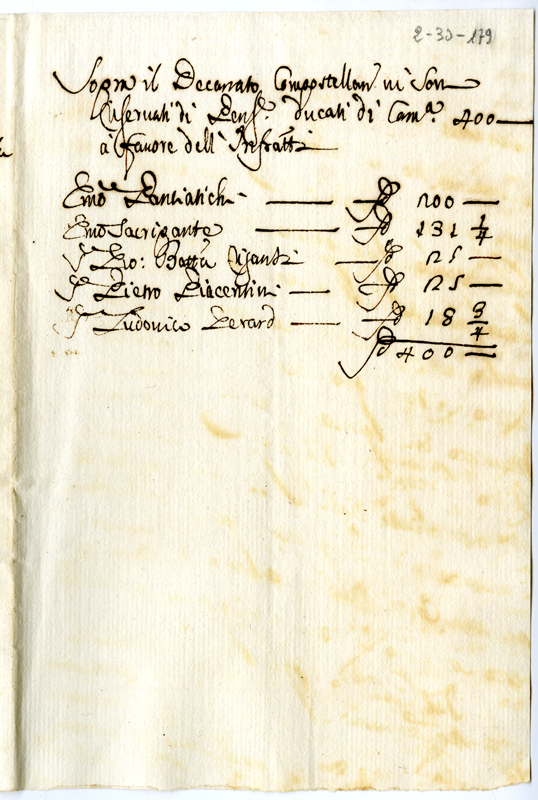 2-33-179
Sopra il Decanato Compostellan vi son
riservati di Pens.e ducati di Cam.a 400
à favore dell' Infratti
Emo Panciatichi 200
Emo Sacripante 131 1/4
S.r Gio: Batta 25
S.r Pietro Piacentini 25
S.r Ludovico Berard 18 3/4
400